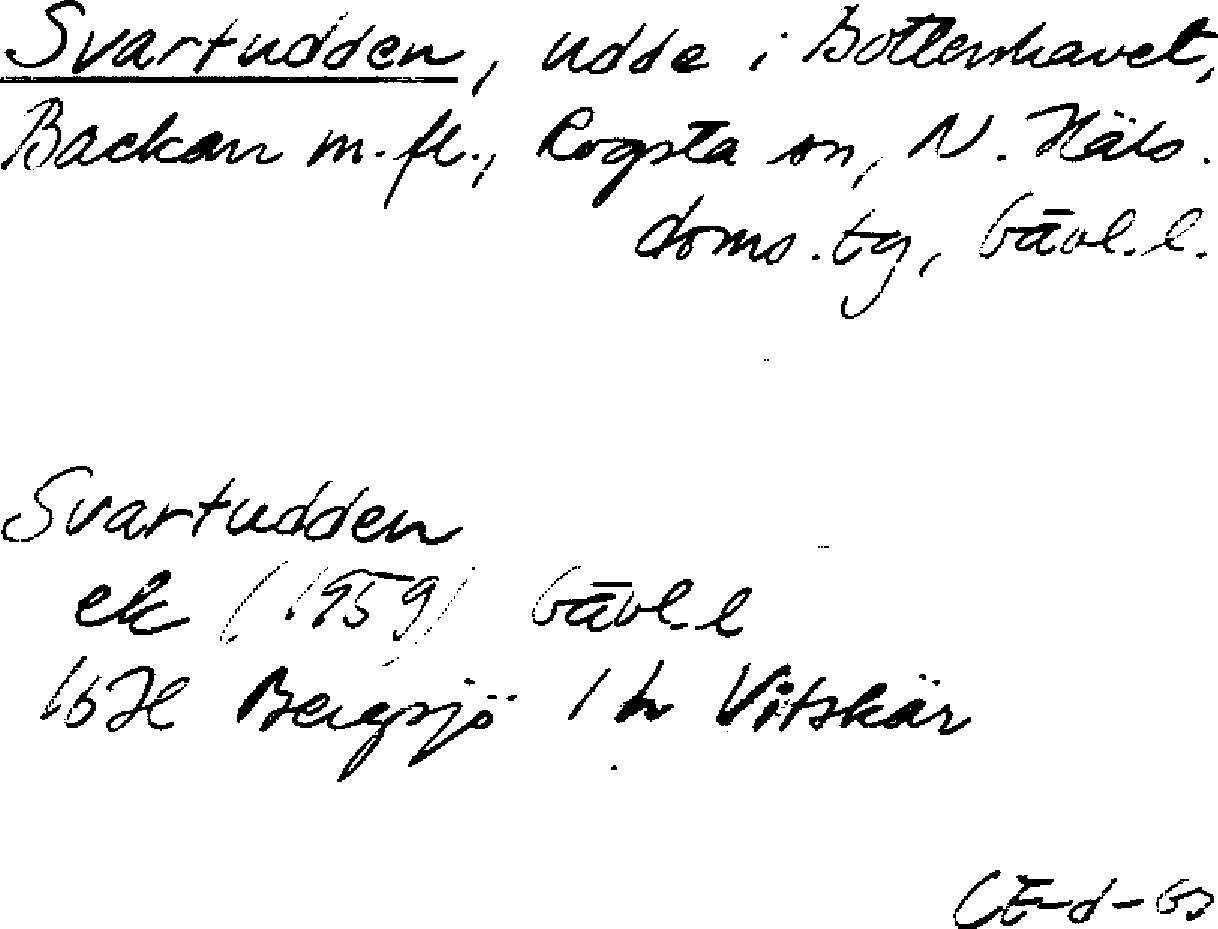 Svartudden, udde i Bottenhavet,
Backan m.fl., Rogsta sn, N. Häls.
doms.tg, Gävl.l.
Svartudden
ek (1959) Gävl.l
16H Bergsjö Vitskär